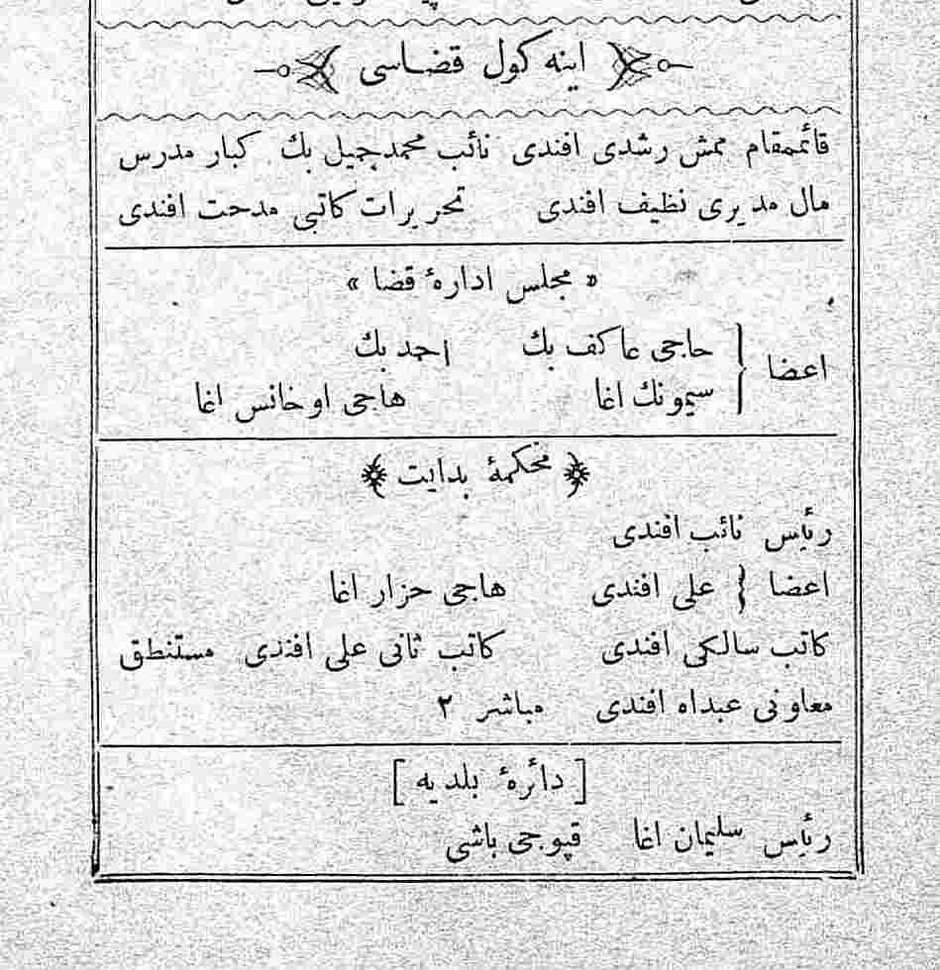 اینه كول قضاسی
قائممقام ممش رشدی افندی نائب محمد جمیل بك كبار مدرس
مال مدیری نظیف افندی تحریرات كاتبی مدحت افندی
« مجلس ادارهٔ قضا »
اعضا { حاجی عاكف بك احمد بك
سیمونك اغا هاجی اوخانس اغا
محكمهٔ بدایت
رئیس نائب افندی
اعضا { علی افندی هاجی حزار اغا
كاتب سالكی افندی كاتب ثانی علی افندی مستنطق
معاونی عبداه افندی مباشر ۲
[ دائرهٔ بلدیه ]
رئیس سلیمان اغا قپوجی باشی